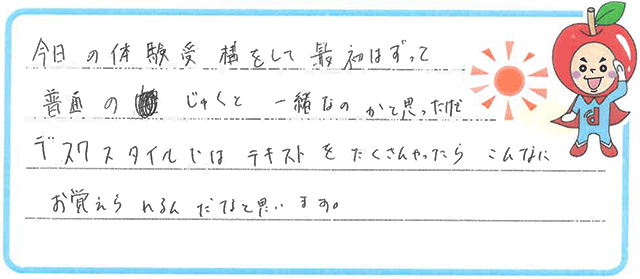 今日の体験受講をして最初はずって
普通の じゅくと一緒なのかと思っただけ
デスクスタイルではテキストをたくさんやったらこんなに
お覚えられるんだなと思います。
d